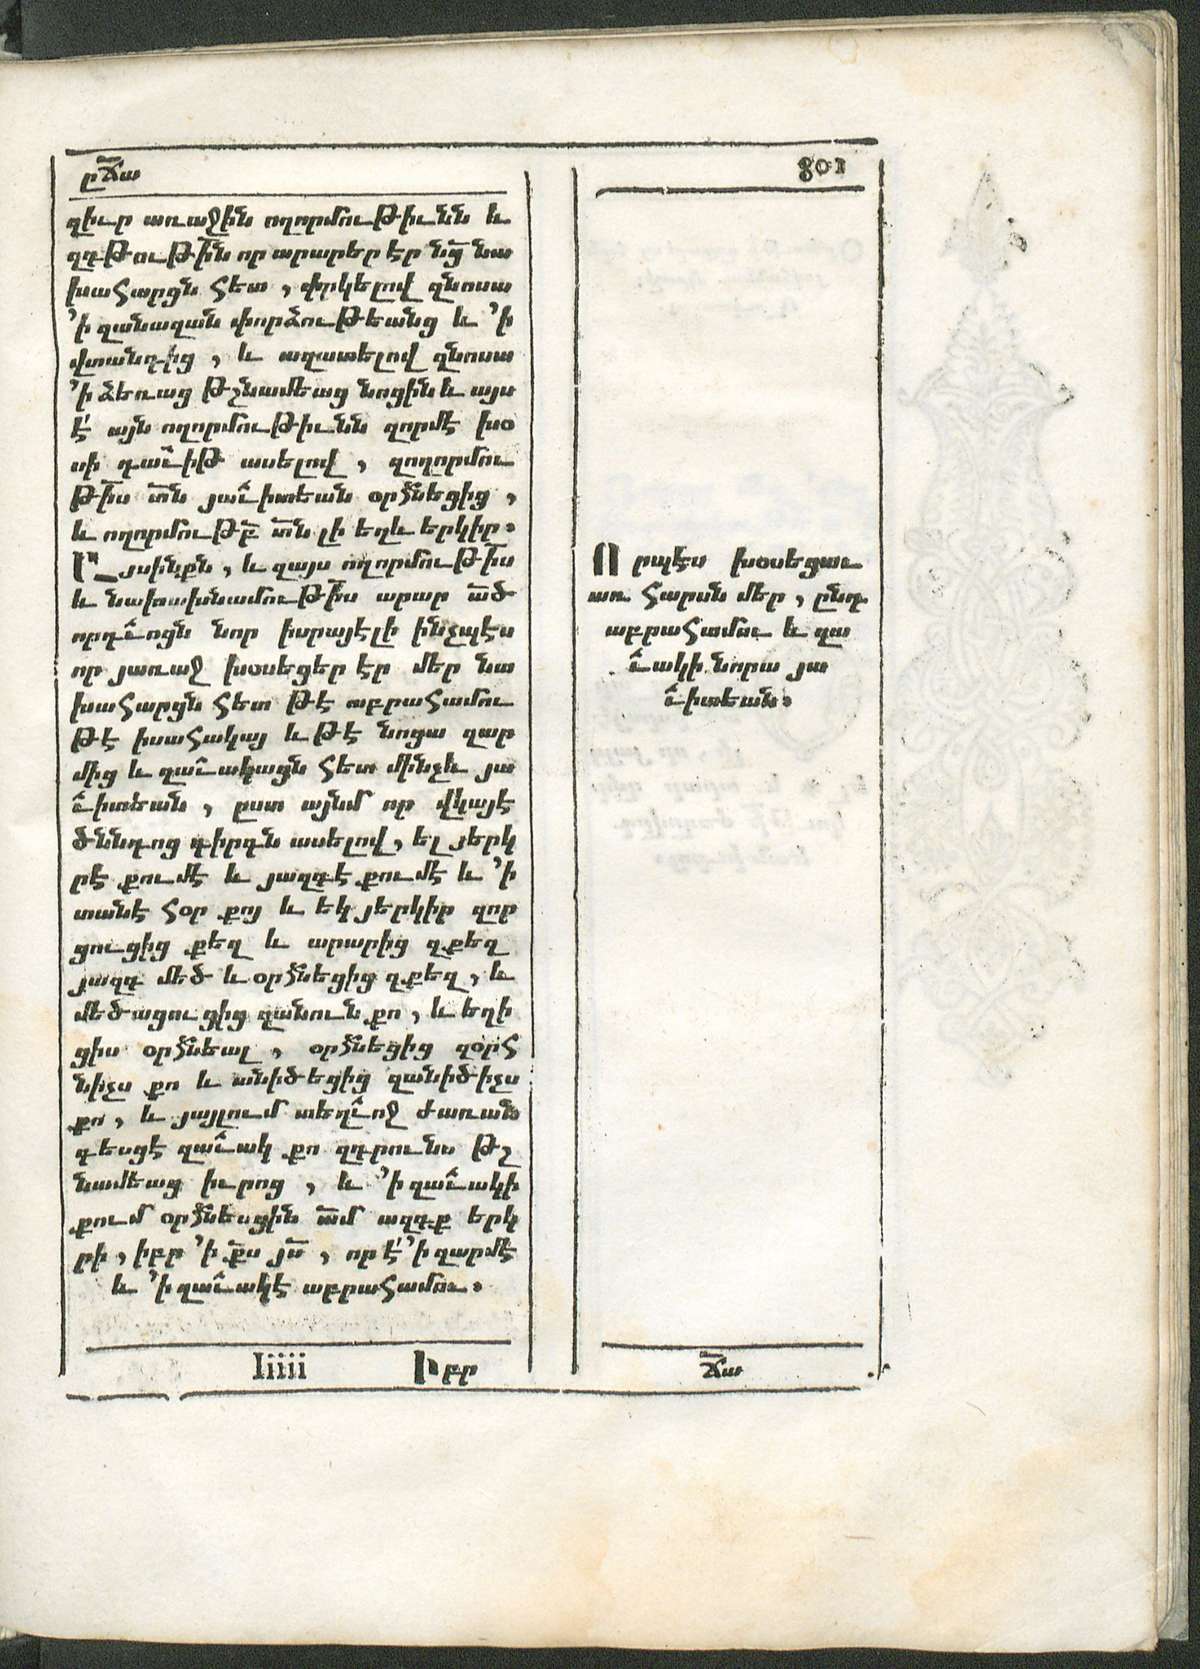 ըՃա
801
զիւր առաջին ողորմութիւնն և
զգթութիՆն որ արարեր էր նց նա
խահարցն հետ, փրկելով զնոսա
՚ի զանազան փորձութեանց և ՚ի
վտանգից, և ազատելով զնոսա
՚ի ձեռաց թշնամեաց նոցին և այս
է՛ այն ողորմութիւնն զորմէ խօ
սի դաւիթ ասելով, զողորմու
թիս տն յաւիտեան օրհնեցից,
և ողորմութբ տն լի եղև երկիր։
Այսինքն, և զայս ողորմութիս
և նախախնամութիս արար ած
որդւոցն նոր իսրայէլի ինչպէս
որ յառաջ խօսեցեր էր մեր նա
խահարցն հետ թէ աբրահամու
թէ իսահակայ և թէ նոցա զար
մից և զաւակացն հետ մինչև յա
ւիտեան, ըստ այնմ որ վկայէ
ծննդոց գիրդն ասելով, ել յերկ
րէ քումէ և յազգէ քումէ և ՚ի
տանէ հօր քոյ և եկ յերկիր զոր
ցուցից քեզ և արարից զքեզ
յազգ մեծ և օրհնեցից զքեզ, և
մեծացուցից զանուն քո, և եղի
ցիս օրհնեալ, օրհնեցից զօրհ
նիչս քո և անիծեցից զանիծիչս
քո, և յայլում տեղւոջ ժառան
գեսցէ զաւակ քո զդրունս թշ
նամեաց իւրոց, և ՚ի զաւակի
քում օրհնեսցին ամ ազգք երկ
րի, իբր ՚ի քս յս, որ է՛ ՚ի զարմէ
և ՚ի զաւակէ աբրահամու։
Iiiii Իբր
Որպէս խօսեցաւ
առ հարսն մեր, ընդ
աբրահամու և զա
ւակի նորա յա
ւիտեան։
Ճա